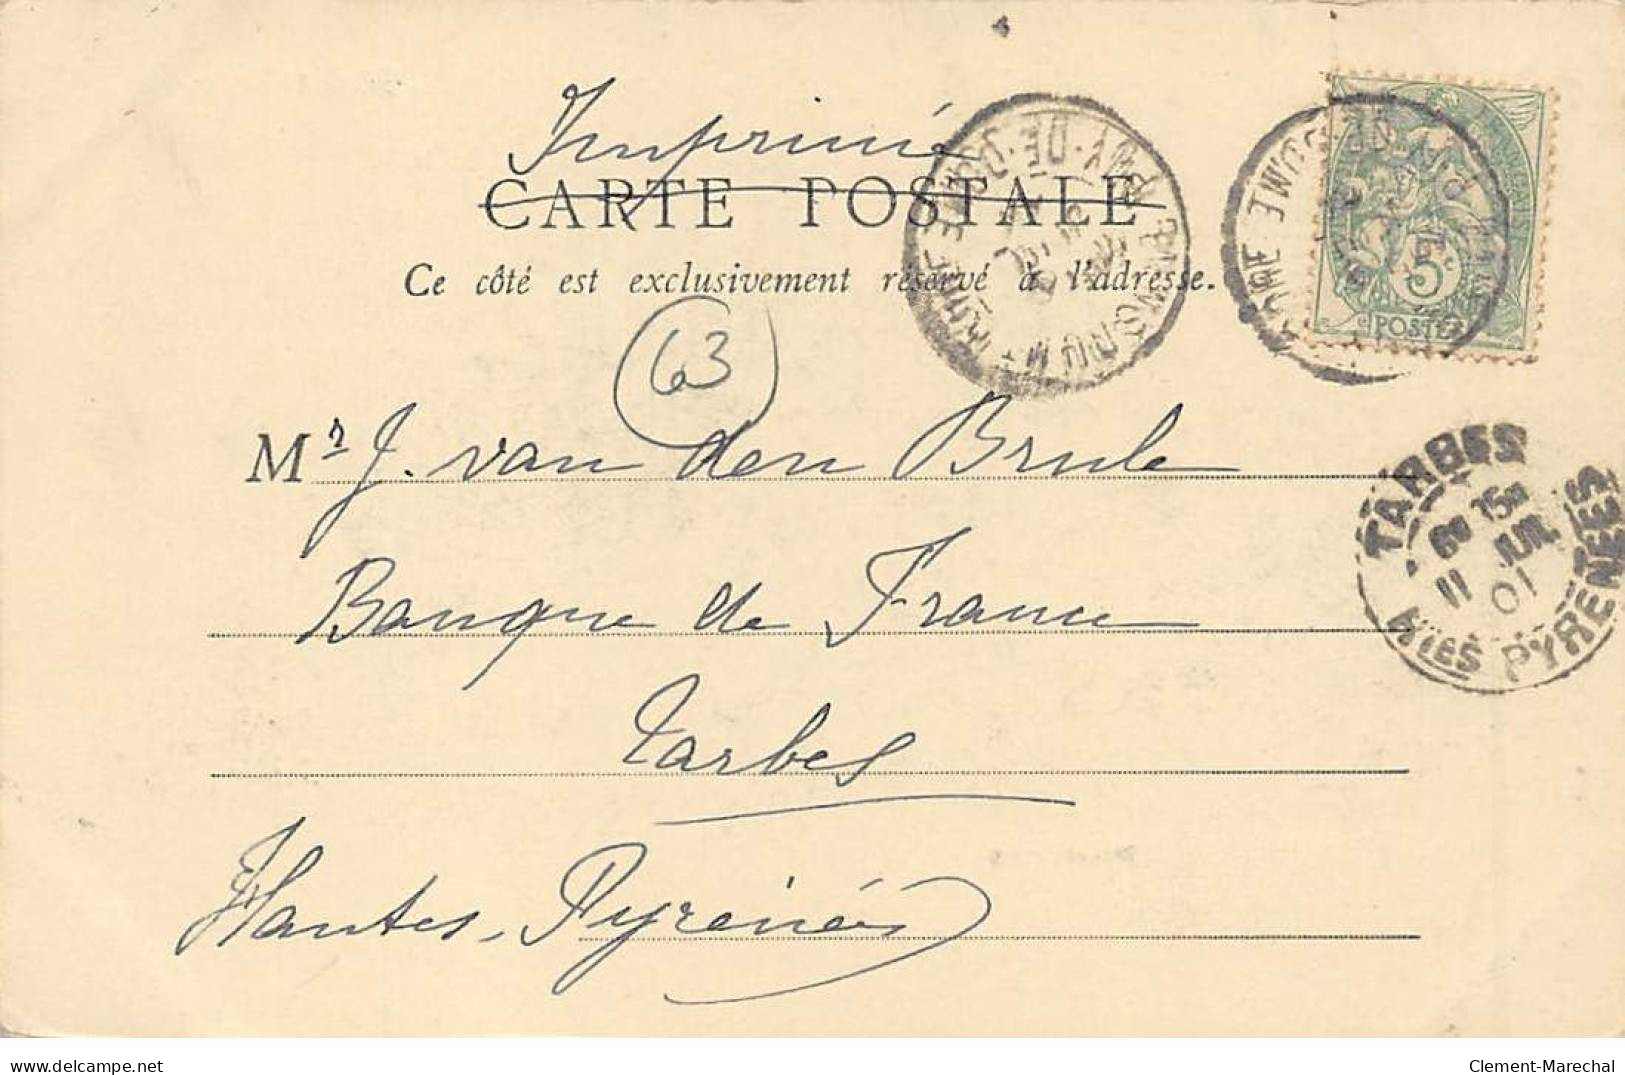 Imprimé
CARTE POSTALE
Ce côté est exclusivement réservé à l'adresse.
63
Mr J. van den Brule
Banque de France
Tarbes
Hautes-Pyrénées
PUY-DE-DOME
PUY-DE-DOME
5
POSTES
TARBES
11 JUIL
01
HTES PYRENEES
www.delcampe.net
Clement-Marechal